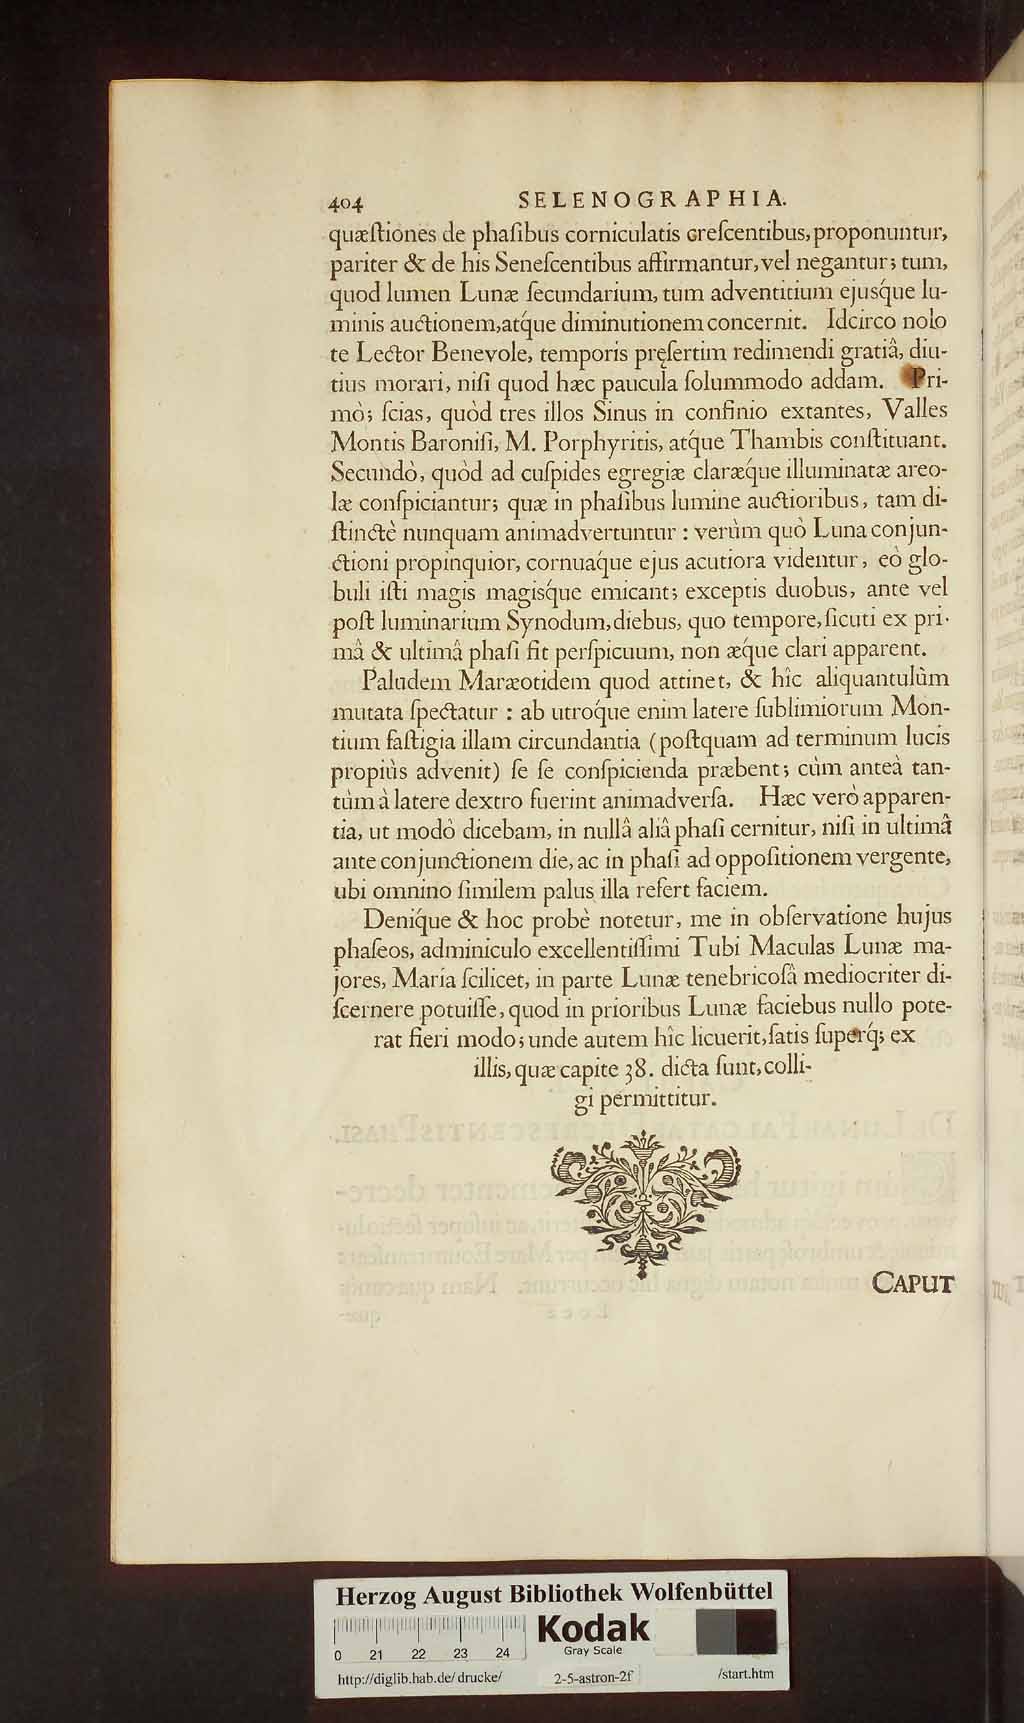 404 SELENOGRAPHIA.
quæſtiones de phaſibus corniculatis creſcentibus, proponuntur,
pariter & de his Seneſcentibus affirmantur, vel negantur; tum,
quod lumen Lunæ ſecundarium, tum adventitium ejusq́ue lu-
minis auctionem, atq́ue diminutionem concernit. Idcirco nolo
te Lector Benevole, temporis pręſertim redimendi gratiâ, diu-
tius morari, niſi quod hæc paucula ſolummodo addam. Pri-
mò; ſcias, quòd tres illos Sinus in confinio extantes, Valles
Montis Baroniſi, M. Porphyritis, atq́ue Thambis conſtituant.
Secundò, quòd ad cuſpides egregiæ claræq́ue illuminatæ areo-
læ conſpiciantur; quæ in phaſibus lumine auctioribus, tam di-
ſtinctè nunquam animadvertuntur : verùm quò Luna conjun-
ctioni propinquior, cornuaq́ue ejus acutiora videntur, eò glo-
buli iſti magis magisq́ue emicant; exceptis duobus, ante vel
poſt luminarium Synodum, diebus, quo tempore, ſicuti ex pri-
mâ & ultimâ phaſi fit perſpicuum, non æq́ue clari apparent.
Paludem Maræotidem quod attinet, & hîc aliquantulùm
mutata ſpectatur : ab utroq́ue enim latere ſublimiorum Mon-
tium faſtigia illam circundantia (poſtquam ad terminum lucis
propiùs advenit) ſe ſe conſpicienda præbent; cùm anteà tan-
tùm à latere dextro fuerint animadverſa. Hæc verò apparen-
tia, ut modò dicebam, in nullâ aliâ phaſi cernitur, niſi in ultimâ
ante conjunctionem die, ac in phaſi ad oppoſitionem vergente,
ubi omnino ſimilem palus illa refert faciem.
Deniq́ue & hoc probè notetur, me in obſervatione hujus
phaſeos, adminiculo excellentiſſimi Tubi Maculas Lunæ ma-
jores, Maria ſcilicet, in parte Lunæ tenebricoſâ mediocriter di-
ſcernere potuiſſe, quod in prioribus Lunæ faciebus nullo pote-
rat fieri modo; unde autem hîc licuerit, ſatis ſuperq́; ex
illis, quæ capite 38. dicta ſunt, colli-
gi permittitur.
CAPUT
Herzog August Bibliothek Wolfenbüttel
0 21 22 23 24
Kodak
Gray Scale
http://diglib.hab.de/drucke/ 2-5-astron-2f /start.htm